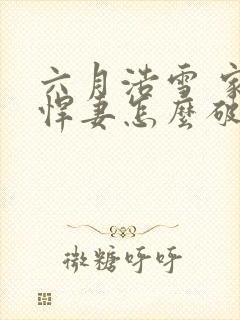 六月浩雪 家
悍妻怎麼破
微糖呼呼